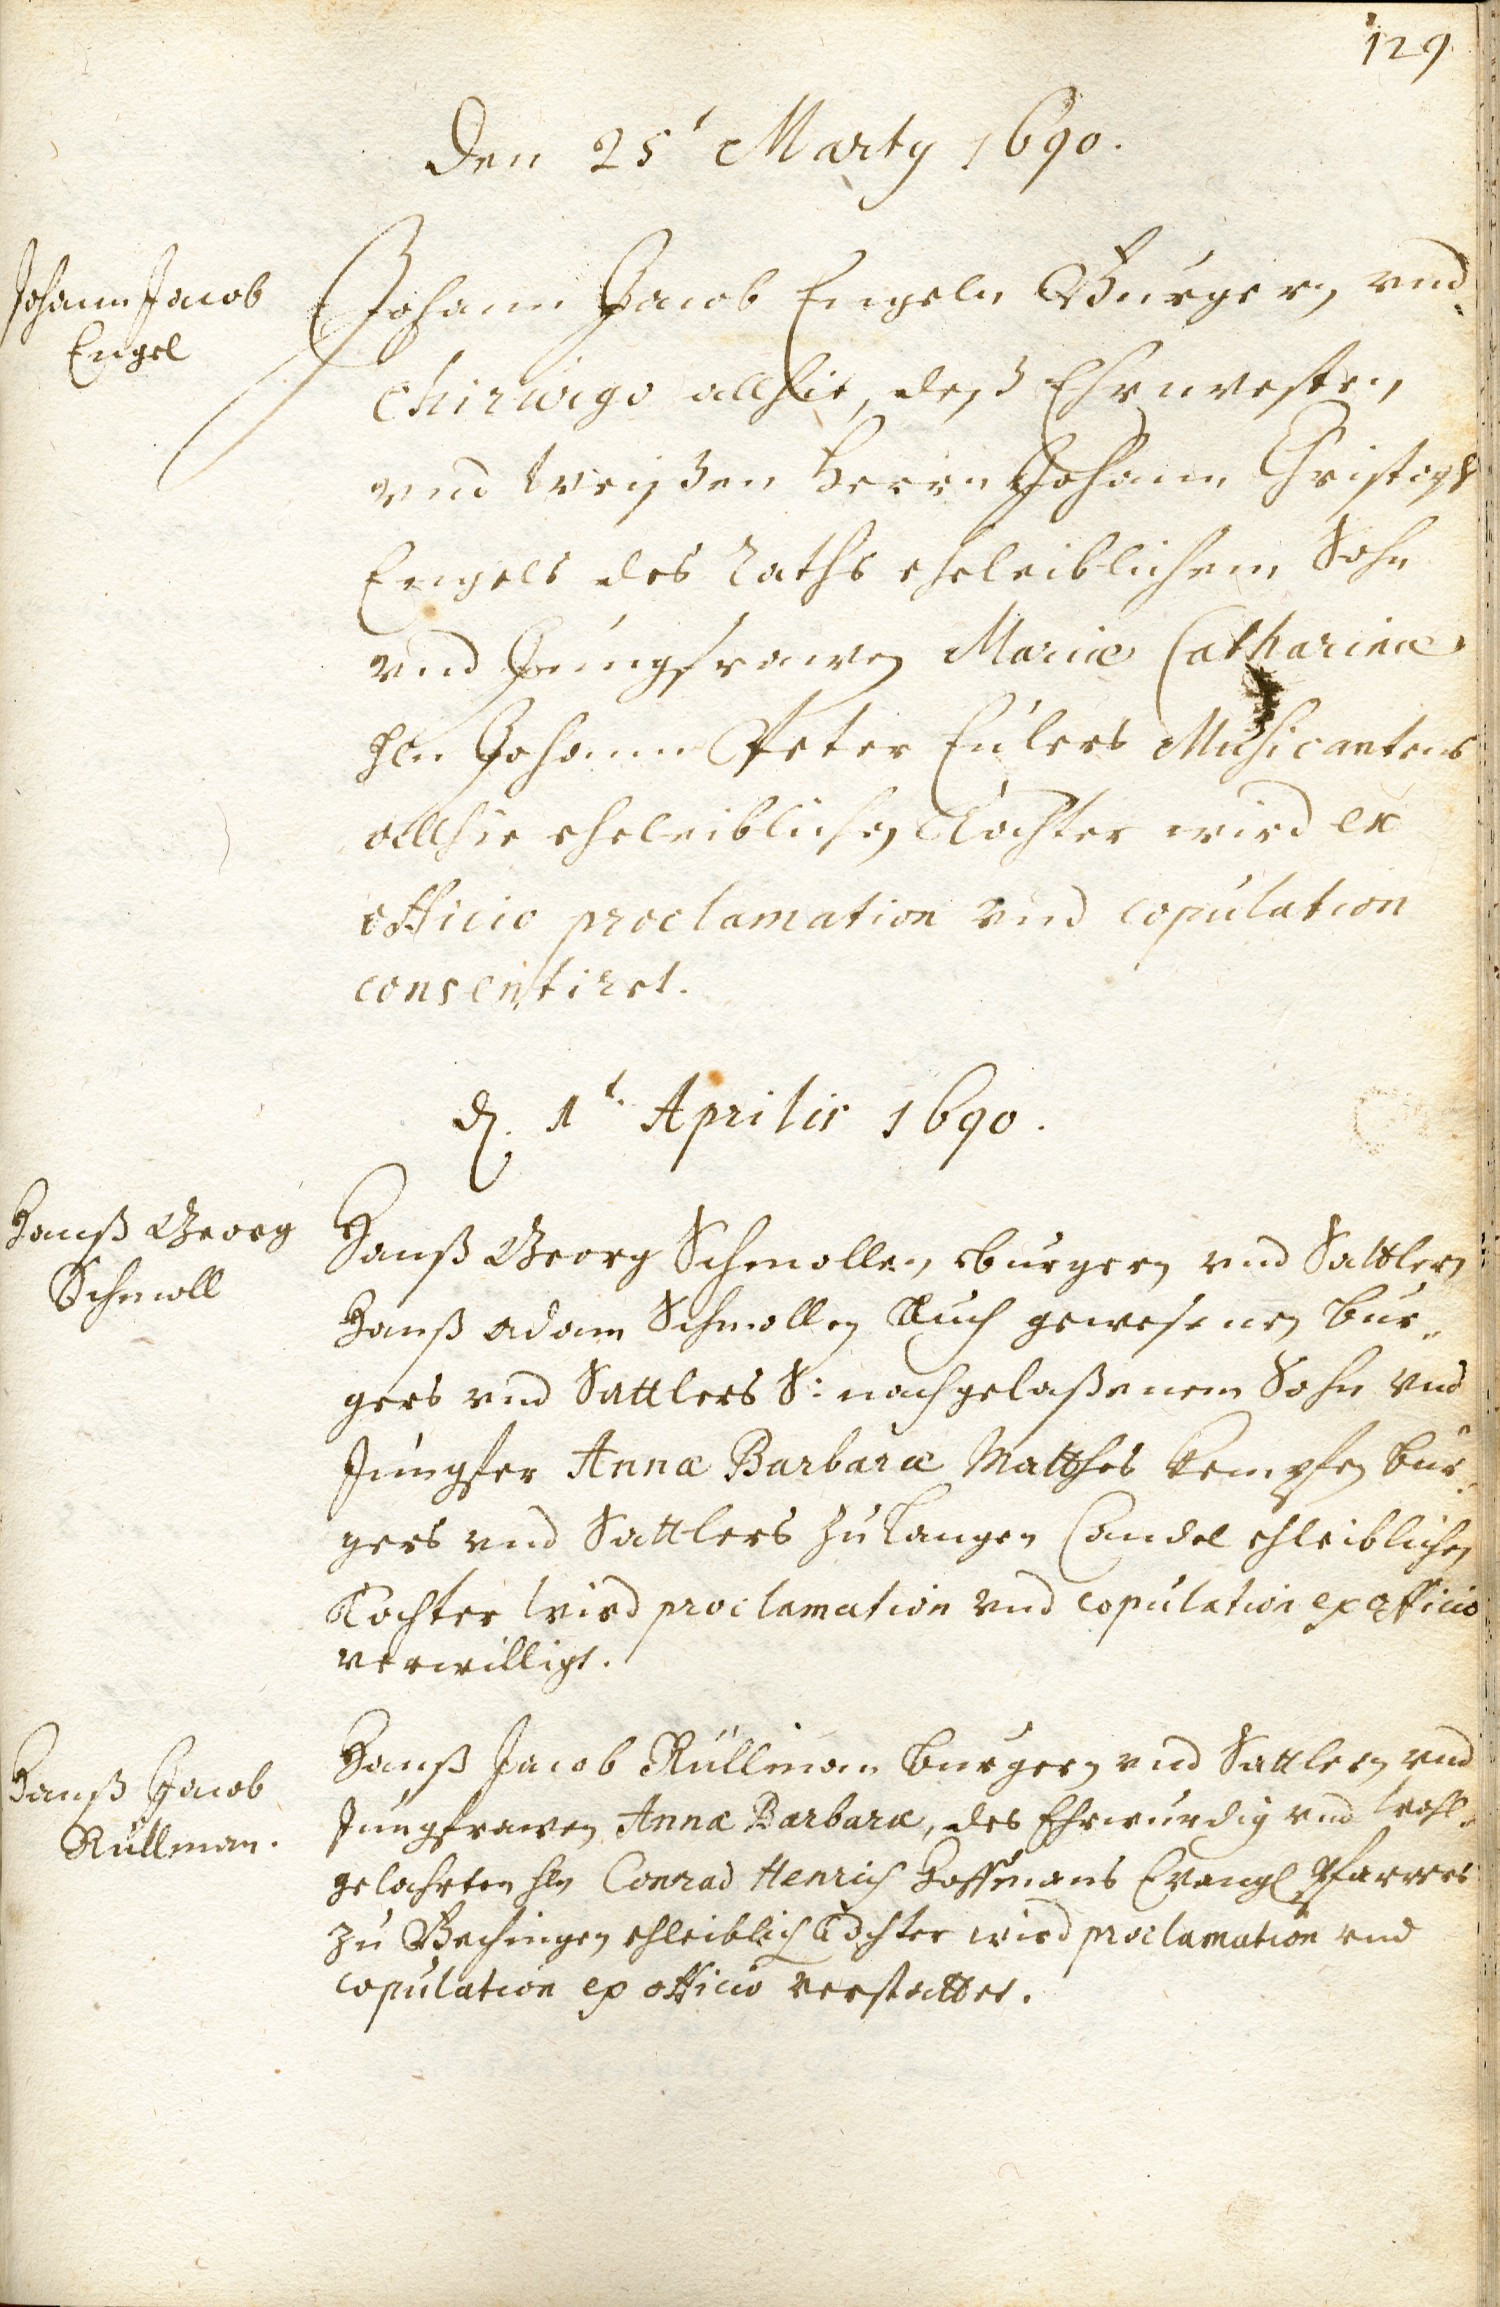 129
Den 25t Marty 1690.
Johann Jacob
Engel
Johann Jacob Engeln Bürgern vnd
Chirurgo allhie, deß Ehrnvesten
vnd Weißen Herrn Johann Christoph
Engels des Raths eheleiblichem Sohn
vnd Jungfrawen Mariæ Catharinæ
Hln Johann Peter Eulers Musicantens
allhie eheleiblichen Tochter wird ex
officio proclamation vnd copulation
consentiret.
d. 1t Aprilis 1690.
Hanß Georg
Schmoll
Hanß Georg Schmollen burgern vnd Sattlern
Hanß Adam Schmollen Auch gewesenen bur„
gers vnd Sattlers S: nachgelaßenem Sohn vnd
Jungfer Annæ Barbaræ Matthes Kempfen bur„
gers vnd Sattlers zu Langen Candel ehleiblichen
Tochter wird proclamation vnd copulation ex officio
verwilligt.
Hanß Jacob
Rullman.
Hanß Jacob Rullman burgern vnd Sattlern vnd
Jungfrawen Annæ Barbaræ, des Ehrwürdig vnd wohl„
gelahrten Hln Conrad Henrich Hoffmans Evangl Pfarrers
zu Bechingen ehleiblich Tochter wird proclamation vnd
copulation ex officio verstattet.